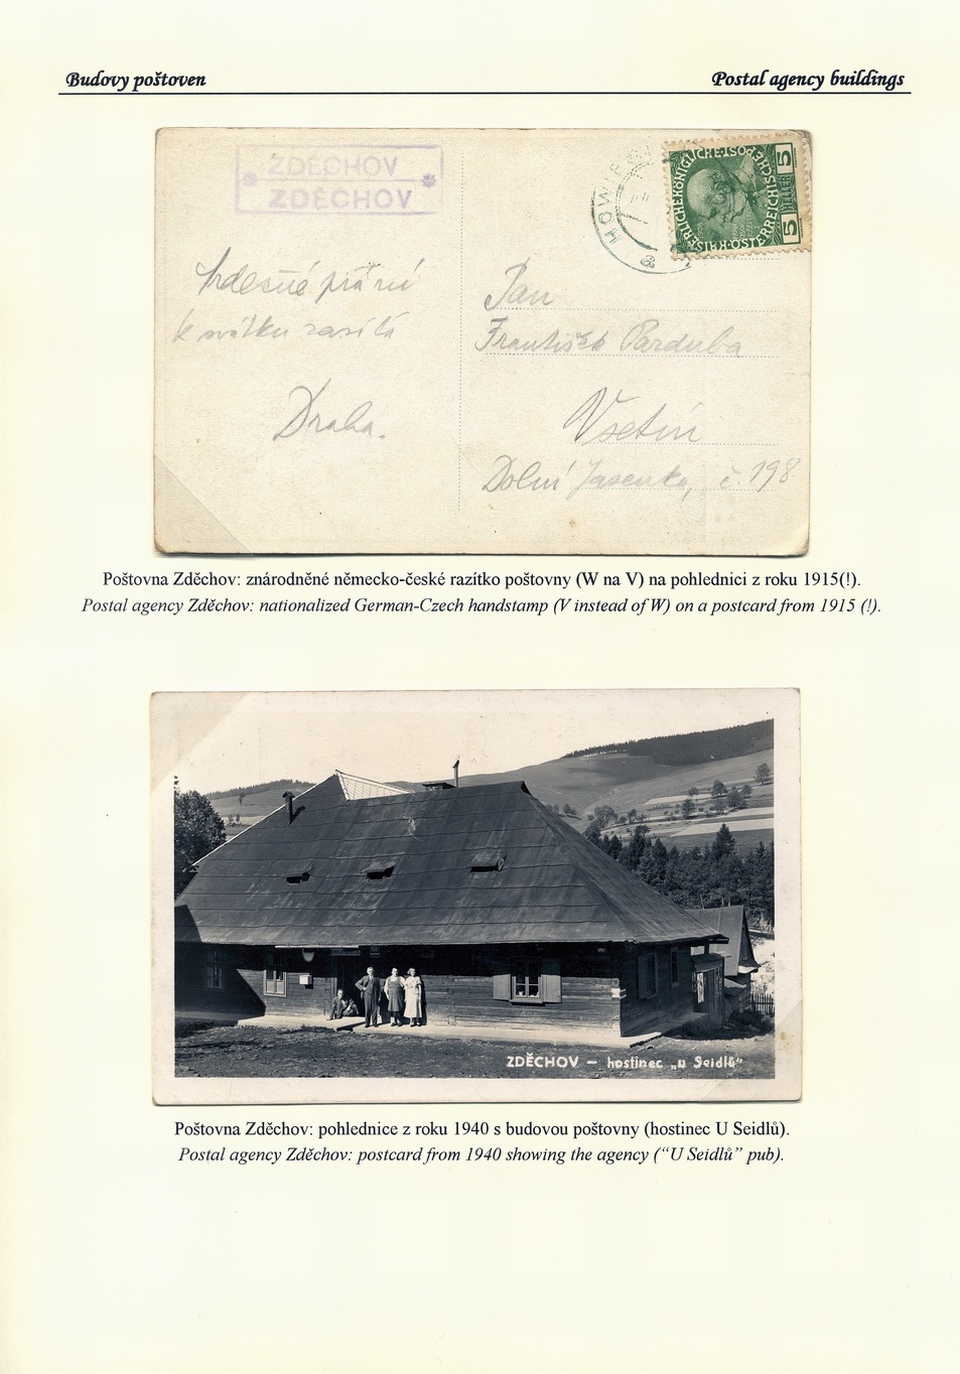 Budovy poštoven
Postal agency buildings
ZDĚCHOV
ZDĚCHOV
HOW
a
KÖNIGLICHE
ÖSTERREICHISCHE
5 HELLER 5
Srdesčné přání
k svátku zasílá
Draha.
Pan
František Parduba
Vsetín
Dolní Jasenka, č. 198
Poštovna Zděchov: znárodněné německo-české razítko poštovny (W na V) na pohlednici z roku 1915(!).
Postal agency Zděchov: nationalized German-Czech handstamp (V instead of W) on a postcard from 1915 (!).
ZDĚCHOV – hostinec „u Seidlů“
Poštovna Zděchov: pohlednice z roku 1940 s budovou poštovny (hostinec U Seidlů).
Postal agency Zděchov: postcard from 1940 showing the agency (“U Seidlů” pub).